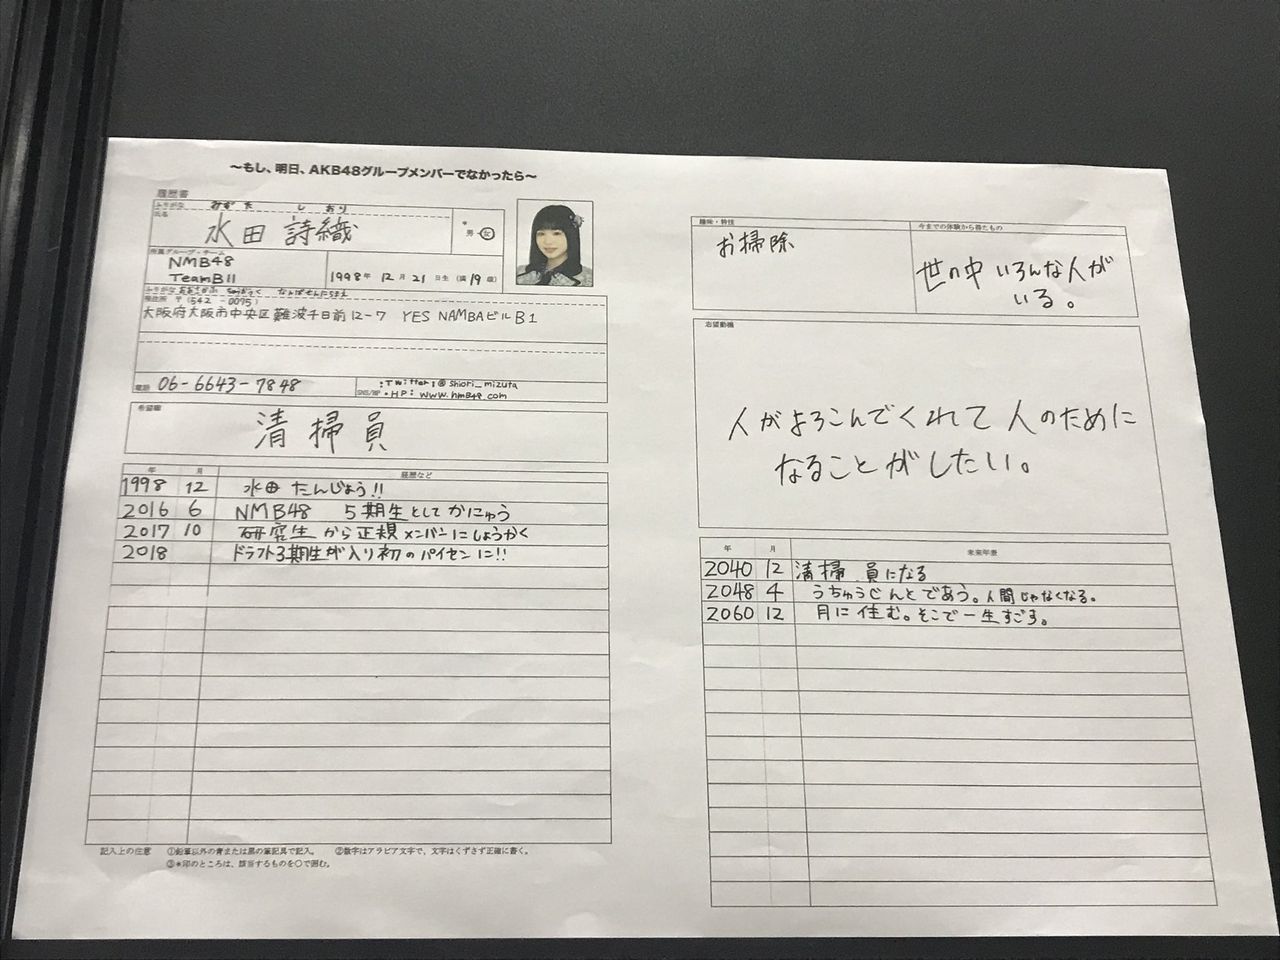 ～もし、明日、AKB48グループメンバーでなかったら～
履歴書
ふりがな みずた しおり
氏名 水田 詩織
* 男・女
所属グループ・チーム
NMB48
TeamBII
1998年 12月 21日生 (満 19 歳)
ふりがな おおさかふ ちゅうおうく なんばせんにちまえ
現住所 〒(542 - 0075)
大阪府大阪市中央区難波千日前12-7 YES NAMBAビルB1
電話 06-6643-7848
SNS/HP
・Twitter:@shiori_mizuta
・HP: www.nmb48.com
希望職
清掃員
年 月 経歴など
1998 12 水田 たんじょう!!
2016 6 NMB48 5期生としてかにゅう
2017 10 研究生から正規メンバーにしょうかく
2018 ドラフト3期生が入り初のパイセンに!!
記入上の注意 ①鉛筆以外の青または黒の筆記具で記入。 ②数字はアラビア文字で、文字はくずさず正確に書く。
③*印のところは、該当するものを○で囲む。
趣味・特技
お掃除
今までの体験から得たもの
世の中 いろんな人が
いる。
志望動機
人がよろこんでくれて人のために
なることがしたい。
年 月 未来年表
2040 12 清掃員になる
2048 4 うちゅうじんとであう。人間じゃなくなる。
2060 12 月に住む。そこで一生すごす。